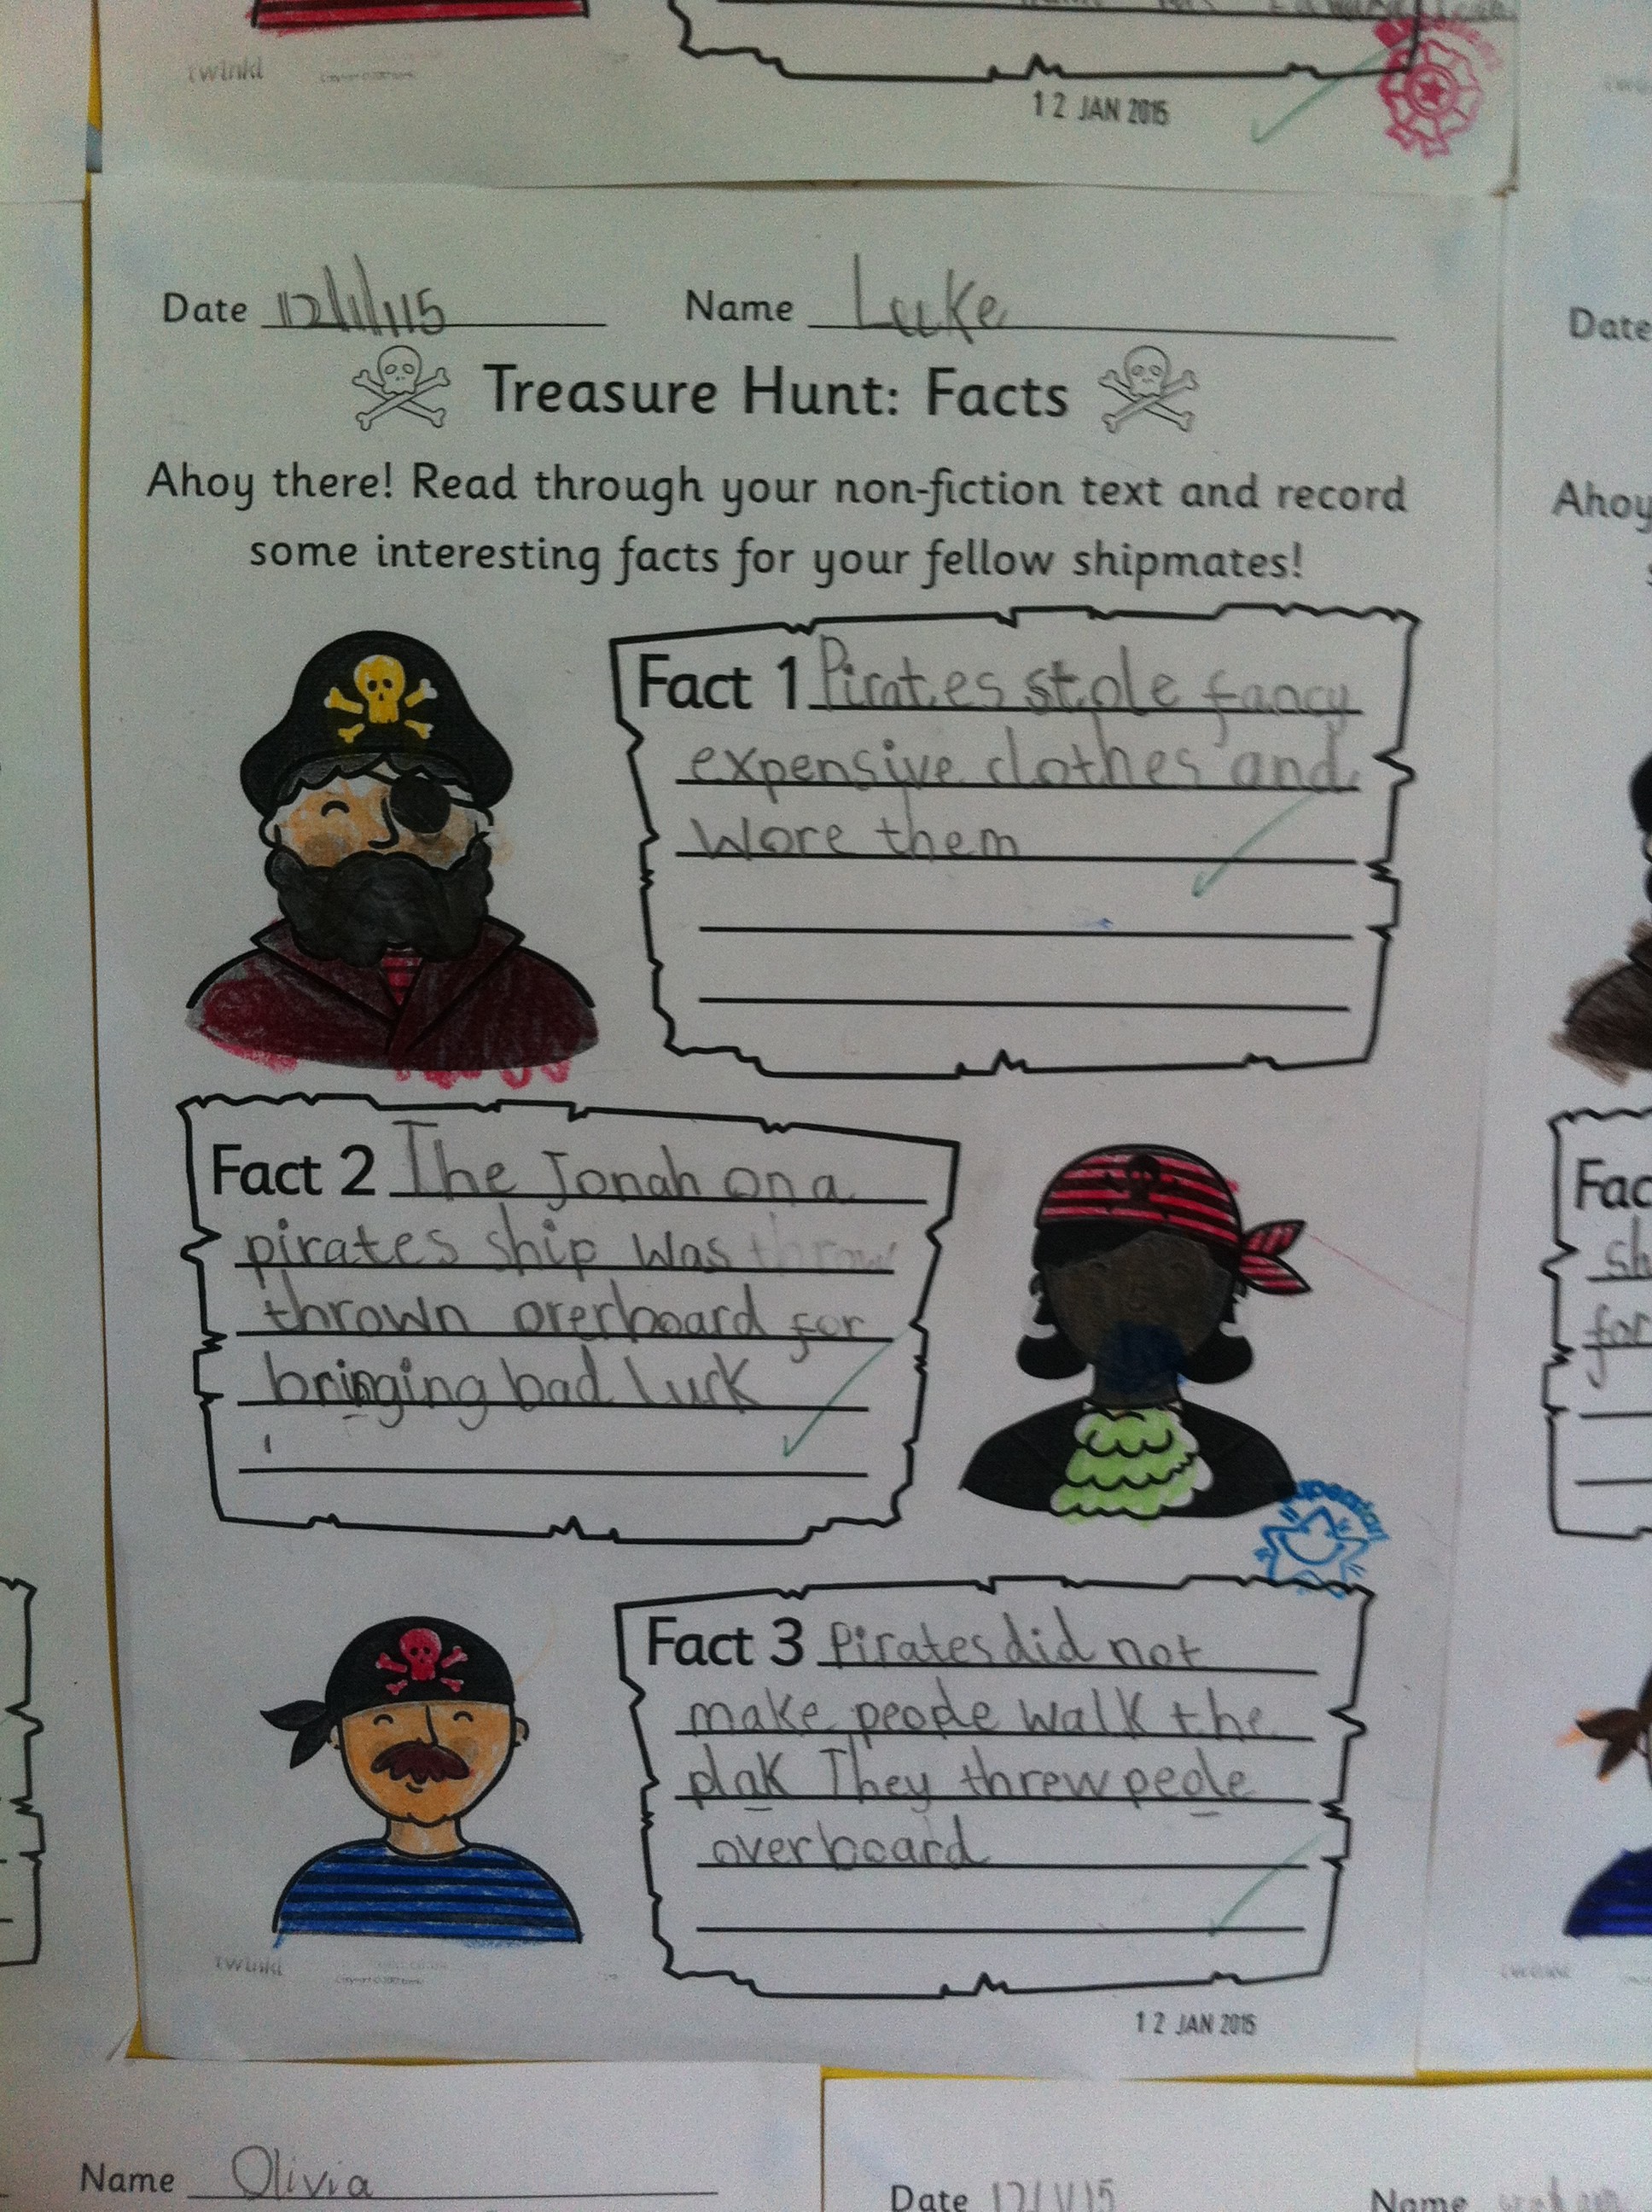 twinkl
12 JAN 2015
Date 12/1/15 Name Luke
Treasure Hunt: Facts
Ahoy there! Read through your non-fiction text and record
some interesting facts for your fellow shipmates!
Fact 1 Pirates stole fancy
expensive clothes and
wore them
Fact 2 The Jonah on a
pirates ship was
thrown overboard for
bringing bad luck
Fact 3 Pirates did not
make people walk the
plak They threw peole
overboard
twinkl
12 JAN 2015
Date
Ahoy
Fac
sh
for
twinkl
Name Olivia
Date 12/1/15 Name